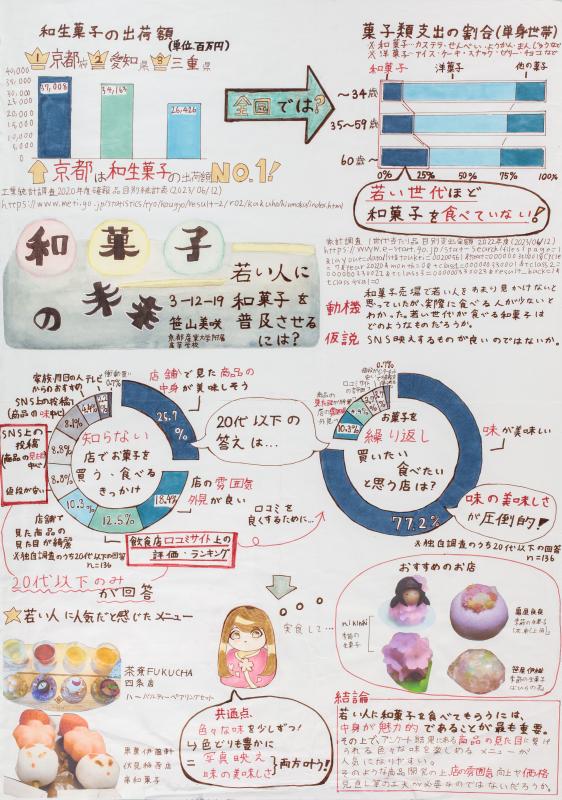 和生菓子の出荷額
(単位:百万円)
1 京都府 2 愛知県 3 三重県
40,000
35,000
30,000
25,000
20,000
15,000
10,000
5,000
0
37,008
34,163
26,426
京都は和生菓子の出荷額NO.1!
工業統計調査2020年度確報品目別統計表(2023/06/12)
全国では?
菓子類支出の割合(単身世帯)
※和菓子…カステラ・せんべい・ようかん・まんじゅうなど
※洋菓子…アイス・ケーキ・スナック・ゼリー・チョコなど
和菓子
洋菓子
他の菓子
~34歳
35~59歳
60歳~
0%
25%
50%
75%
100%
若い世代ほど
和菓子を食べていない!
和菓子
の未来
若い人に
和菓子を
普及させる
には?
3-12-19
笹山美咲
京都産業大学附属
高等学校
動機
和菓子売場で若い人をあまり見かけないと
思っていたが、実際に食べる人が少ないと
わかった。若い世代が食べる和菓子は
どのようなものだろうか。
仮説
SNS映えするものが良いのではないか。
知らない
店でお菓子を
買う・食べる
きっかけ
店舗で見た商品の
中身が美味しそう
25.7
%
店の雰囲気
外見が良い
18.4%
飲食店口コミサイト上の
評価・ランキング
12.5%
店舗で
見た商品の
見た目が綺麗
10.3%
値段が安い
8.8%
SNS上の
投稿
(商品の見た目
中心)
8.8%
SNS上の投稿
(商品の味中心)
8.1%
家族・周囲の人
からのおすすめ
テレビ
0.7%
※独自調査のうち20代以下の回答
n=136
20代以下の
答えは…
口コミを
良くするために…
お菓子を
繰り返し
買いたい
食べたい
と思う店は?
味が美味しい
77.2%
10.3%
0.7%
味の美味しさ
が圧倒的!
※独自調査のうち20代以下の回答
n=136
20代以下のみ
が回答
若い人に人気だと感じたメニュー
茶葉FUKUCHA
四条店
ハーバルティーペアリングセット
伏見稲荷店
串和菓子
実食して…
共通点、
色々な味を少しずつ!
色どりも豊かに
=写真映え
味の美味しさ
両方叶う!
おすすめのお店
nikiniki
季節の
生菓子
季節の生菓子
笹屋伊織
季節の生菓子
結論
若い人に和菓子を食べてもらうには、
中身が魅力的であることが最も重要。
その上で、アンケート結果にある商品の見た目に惹き
られる色々な味を楽しめるメニューが
人気になりやすい。
そのような商品開発の上、店の雰囲気向上や価格
見直し等の工夫が必要なのではないだろうか。